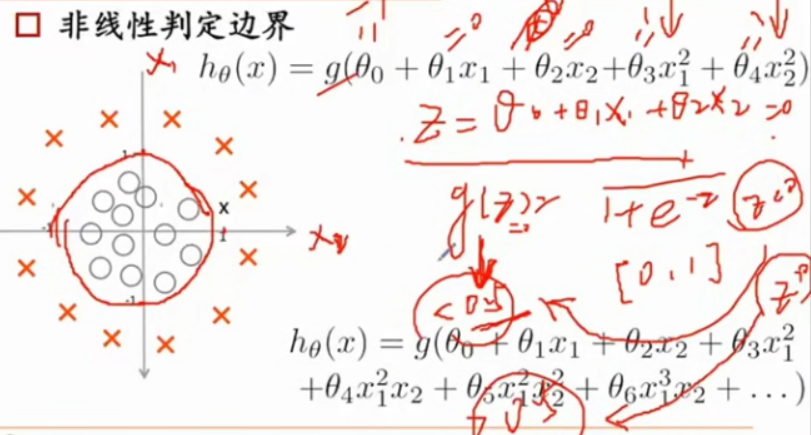 □ 非线性判定边界
h_θ(x) = g(θ₀ + θ₁x₁ + θ₂x₂+θ₃x₁² + θ₄x₂²)
z = θ₀ + θ₁x₁ + θ₂x₂ = 0
x₁
1
-1
x
1
x₂
-1
g(z) = 1 / 1+e^-z
z<0
[0,1]
<0.5
h_θ(x) = g(θ₀ + θ₁x₁ + θ₂x₂ + θ₃x₁²
+θ₄x₁²x₂ + θ₅x₁²x₂² + θ₆x₁³x₂ + . . . )